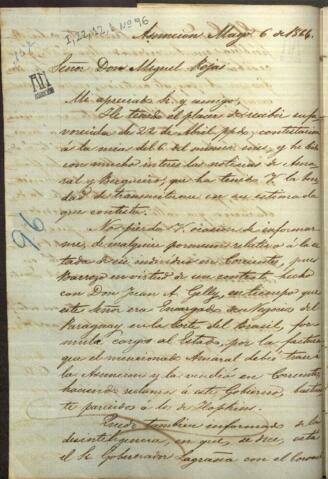 I, 22, 12, 1 Nº 96
Asuncion Mayo 6 de 1864.
Señor Don Miguel Rojas
Mi apreciado Sr. y amigo,
He tenido el placer de recibir su fa-
vorecida de 22 de Abril ppdo, contestacion
á la mia del 6 del mismo mes, y he leido
con mucho interes las noticias de Ama-
ral y Barguero, que ha tenido V. la bon-
dad de transmitirme en su estimada
que contesto.
No pierda V. ocasion de informar-
me, de cualquier pormenor relativo á la es-
tada de ese individuo en Corrientes, pues
Barroso en virtud de un contrato hecho
con Don Juan A. Gelly, en tiempo que
este Señor era Encargado de Negocios del
Paraguay en la Corte del Brasil, for-
mula cargos al Estado, por la factura
que el mencionado Amaral debió traer á
la Asuncion y la vendió en Corrientes,
haciendo reclamos á este Gobierno, bastan-
te parecidos á los de Hopkins.
Quedo tambien informado de la
desinteligencia, en que, se dice, está
el Sr. Gobernador Lagraña con el Coronel
96